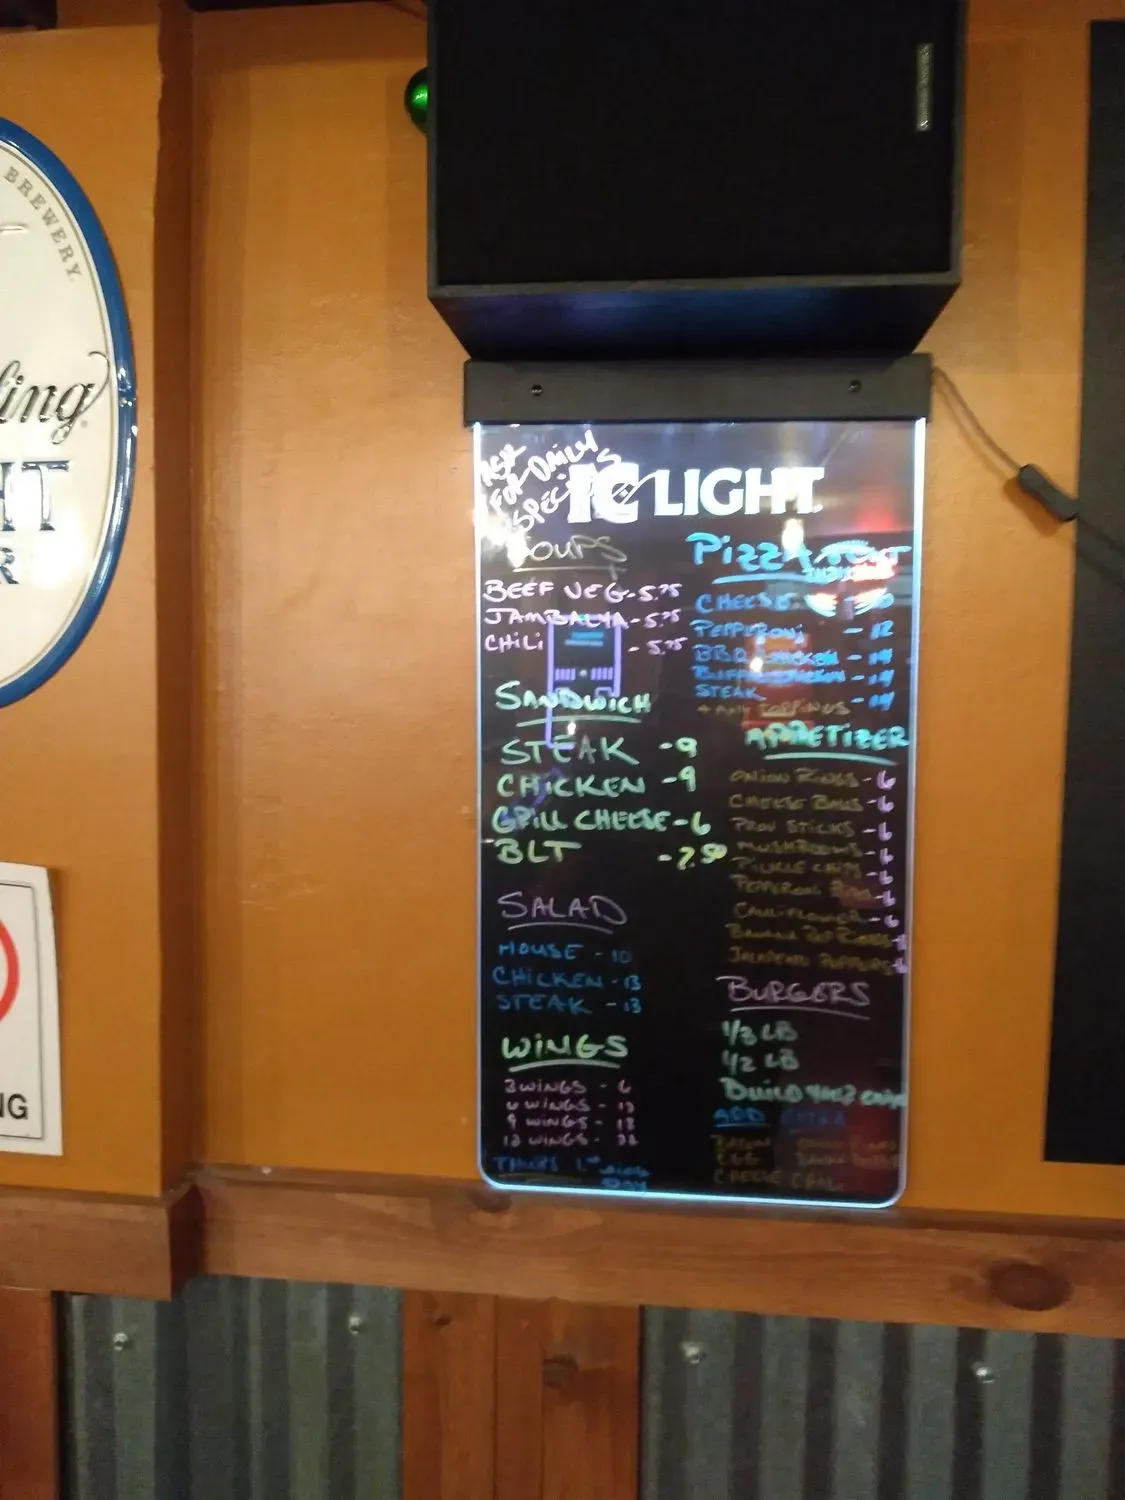 BREWERY
ling
HT
R
NG
ASK
FOR DAILY
SPECIALS
IC LIGHT
SOUPS
BEEF VEG - 5.75
JAMBALYA - 5.75
CHILI - 5.75
SANDWICH
STEAK - 9
CHICKEN - 9
GRILL CHEESE - 6
BLT - 7.50
SALAD
HOUSE - 10
CHICKEN - 13
STEAK - 13
WINGS
3 WINGS - 6
6 WINGS -
9 WINGS - 18
12 WINGS -
THURS WING
DAY
PIZZA
CHEESE
PEPPERONI - 12
BBQ CHICKEN - 14
BUFF CHICKEN - 14
STEAK - 14
+ ANY TOPPINGS
APPETIZER
ONION RINGS - 6
CHEESE BALLS - 6
PROV STICKS - 6
MUSHROOMS - 6
PICKLE CHIPS - 6
PEPPERONI - 6
CAULIFLOWER - 6
BANANA PEP RINGS -
JALAPENO POPPERS - 6
BURGERS
1/3 LB
1/2 LB
BUILD YOUR OWN
ADD EXTRA
BACON ONION RINGS
EGG
CHEESE CHILI